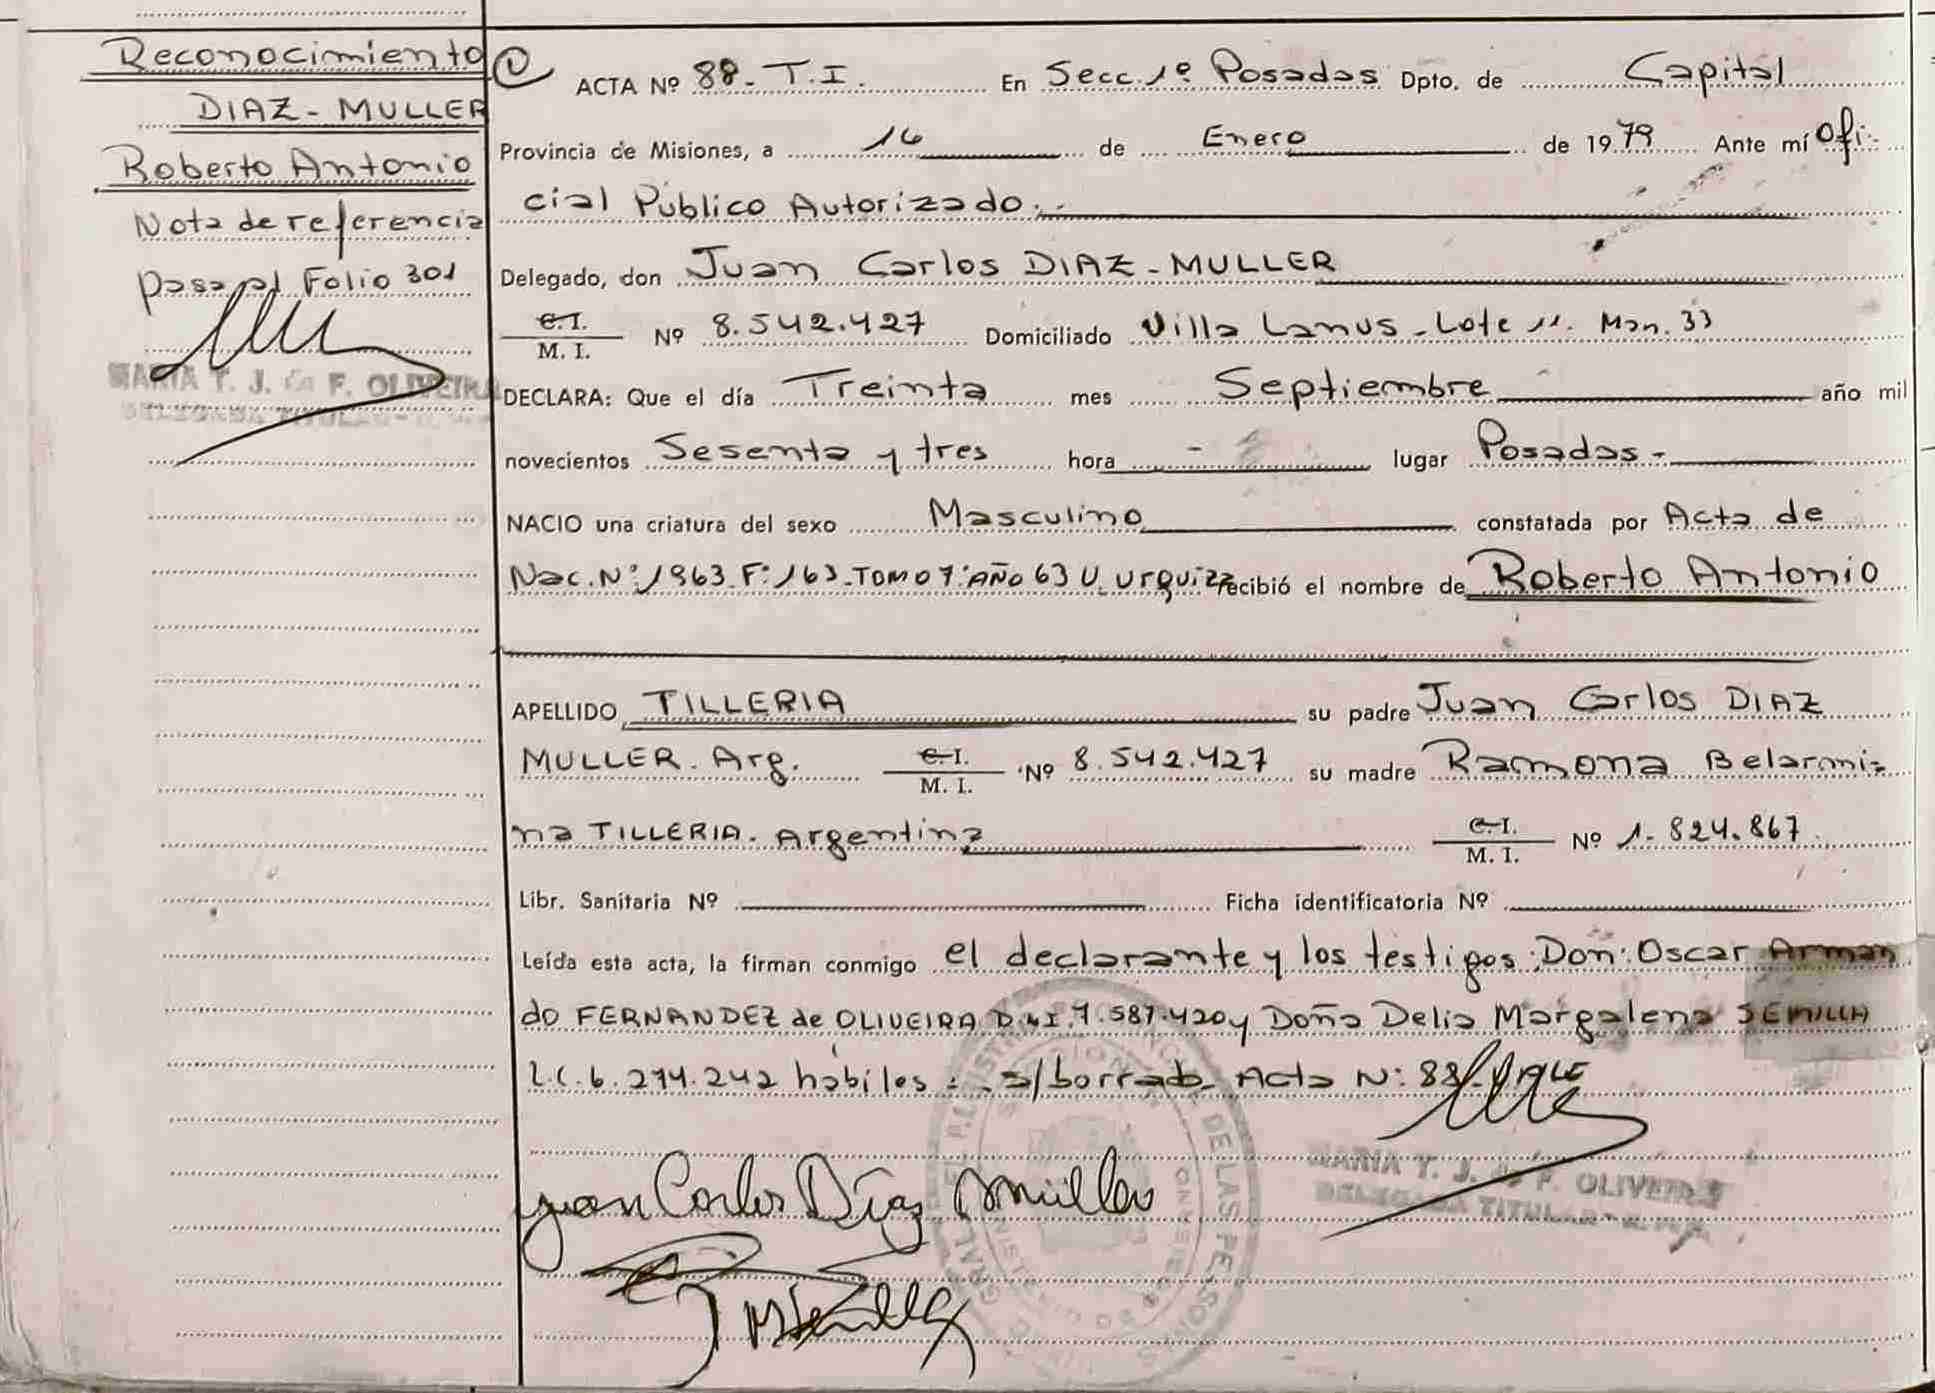 Reconocimiento
DIAZ - MULLER
Roberto Antonio
Nota de referencia
pasa al Folio 301
MARIA T. J. de F. OLIVEIRA
DELEGADA TITULAR
ACTA Nº 88 - T.I. En Secc. 1º Posadas Dpto. de Capital
Provincia de Misiones, a 16 de Enero de 1979 Ante mí Ofi-
cial Público Autorizado.-
Delegado, don Juan Carlos DIAZ - MULLER
C.I. M. I. Nº 8.542.427 Domiciliado Villa Lanus - Lote 11. Man. 33
DECLARA: Que el día Treinta mes Septiembre año mil
novecientos Sesenta y tres hora - lugar Posadas -
NACIO una criatura del sexo Masculino constatada por Acta de
Nac. Nº: 1963 F: 163 - TOMO 7: AÑO 63 U. Urquiza recibió el nombre de Roberto Antonio
APELLIDO TILLERIA su padre Juan Carlos DIAZ
MULLER. Arg. C.I. M. I. Nº 8.542.427 su madre Ramona Belarmi-
na TILLERIA. Argentina C.I. M. I. Nº 1.824.867.
Libr. Sanitaria Nº Ficha identificatoria Nº
Leída esta acta, la firman conmigo el declarante y los testigos: Don: Oscar Arman
do FERNANDEZ de OLIVEIRA D.N.I. 7.587.420 y Doña Delia Margalena SEMILLA
L.C. 6.274.242 hábiles : - s/borrado Acta Nº: 88 - VALE
MARIA T. J. de F. OLIVEIRA
DELEGADA TITULAR
Juan Carlos Díaz Müller
DE LAS PERSONAS